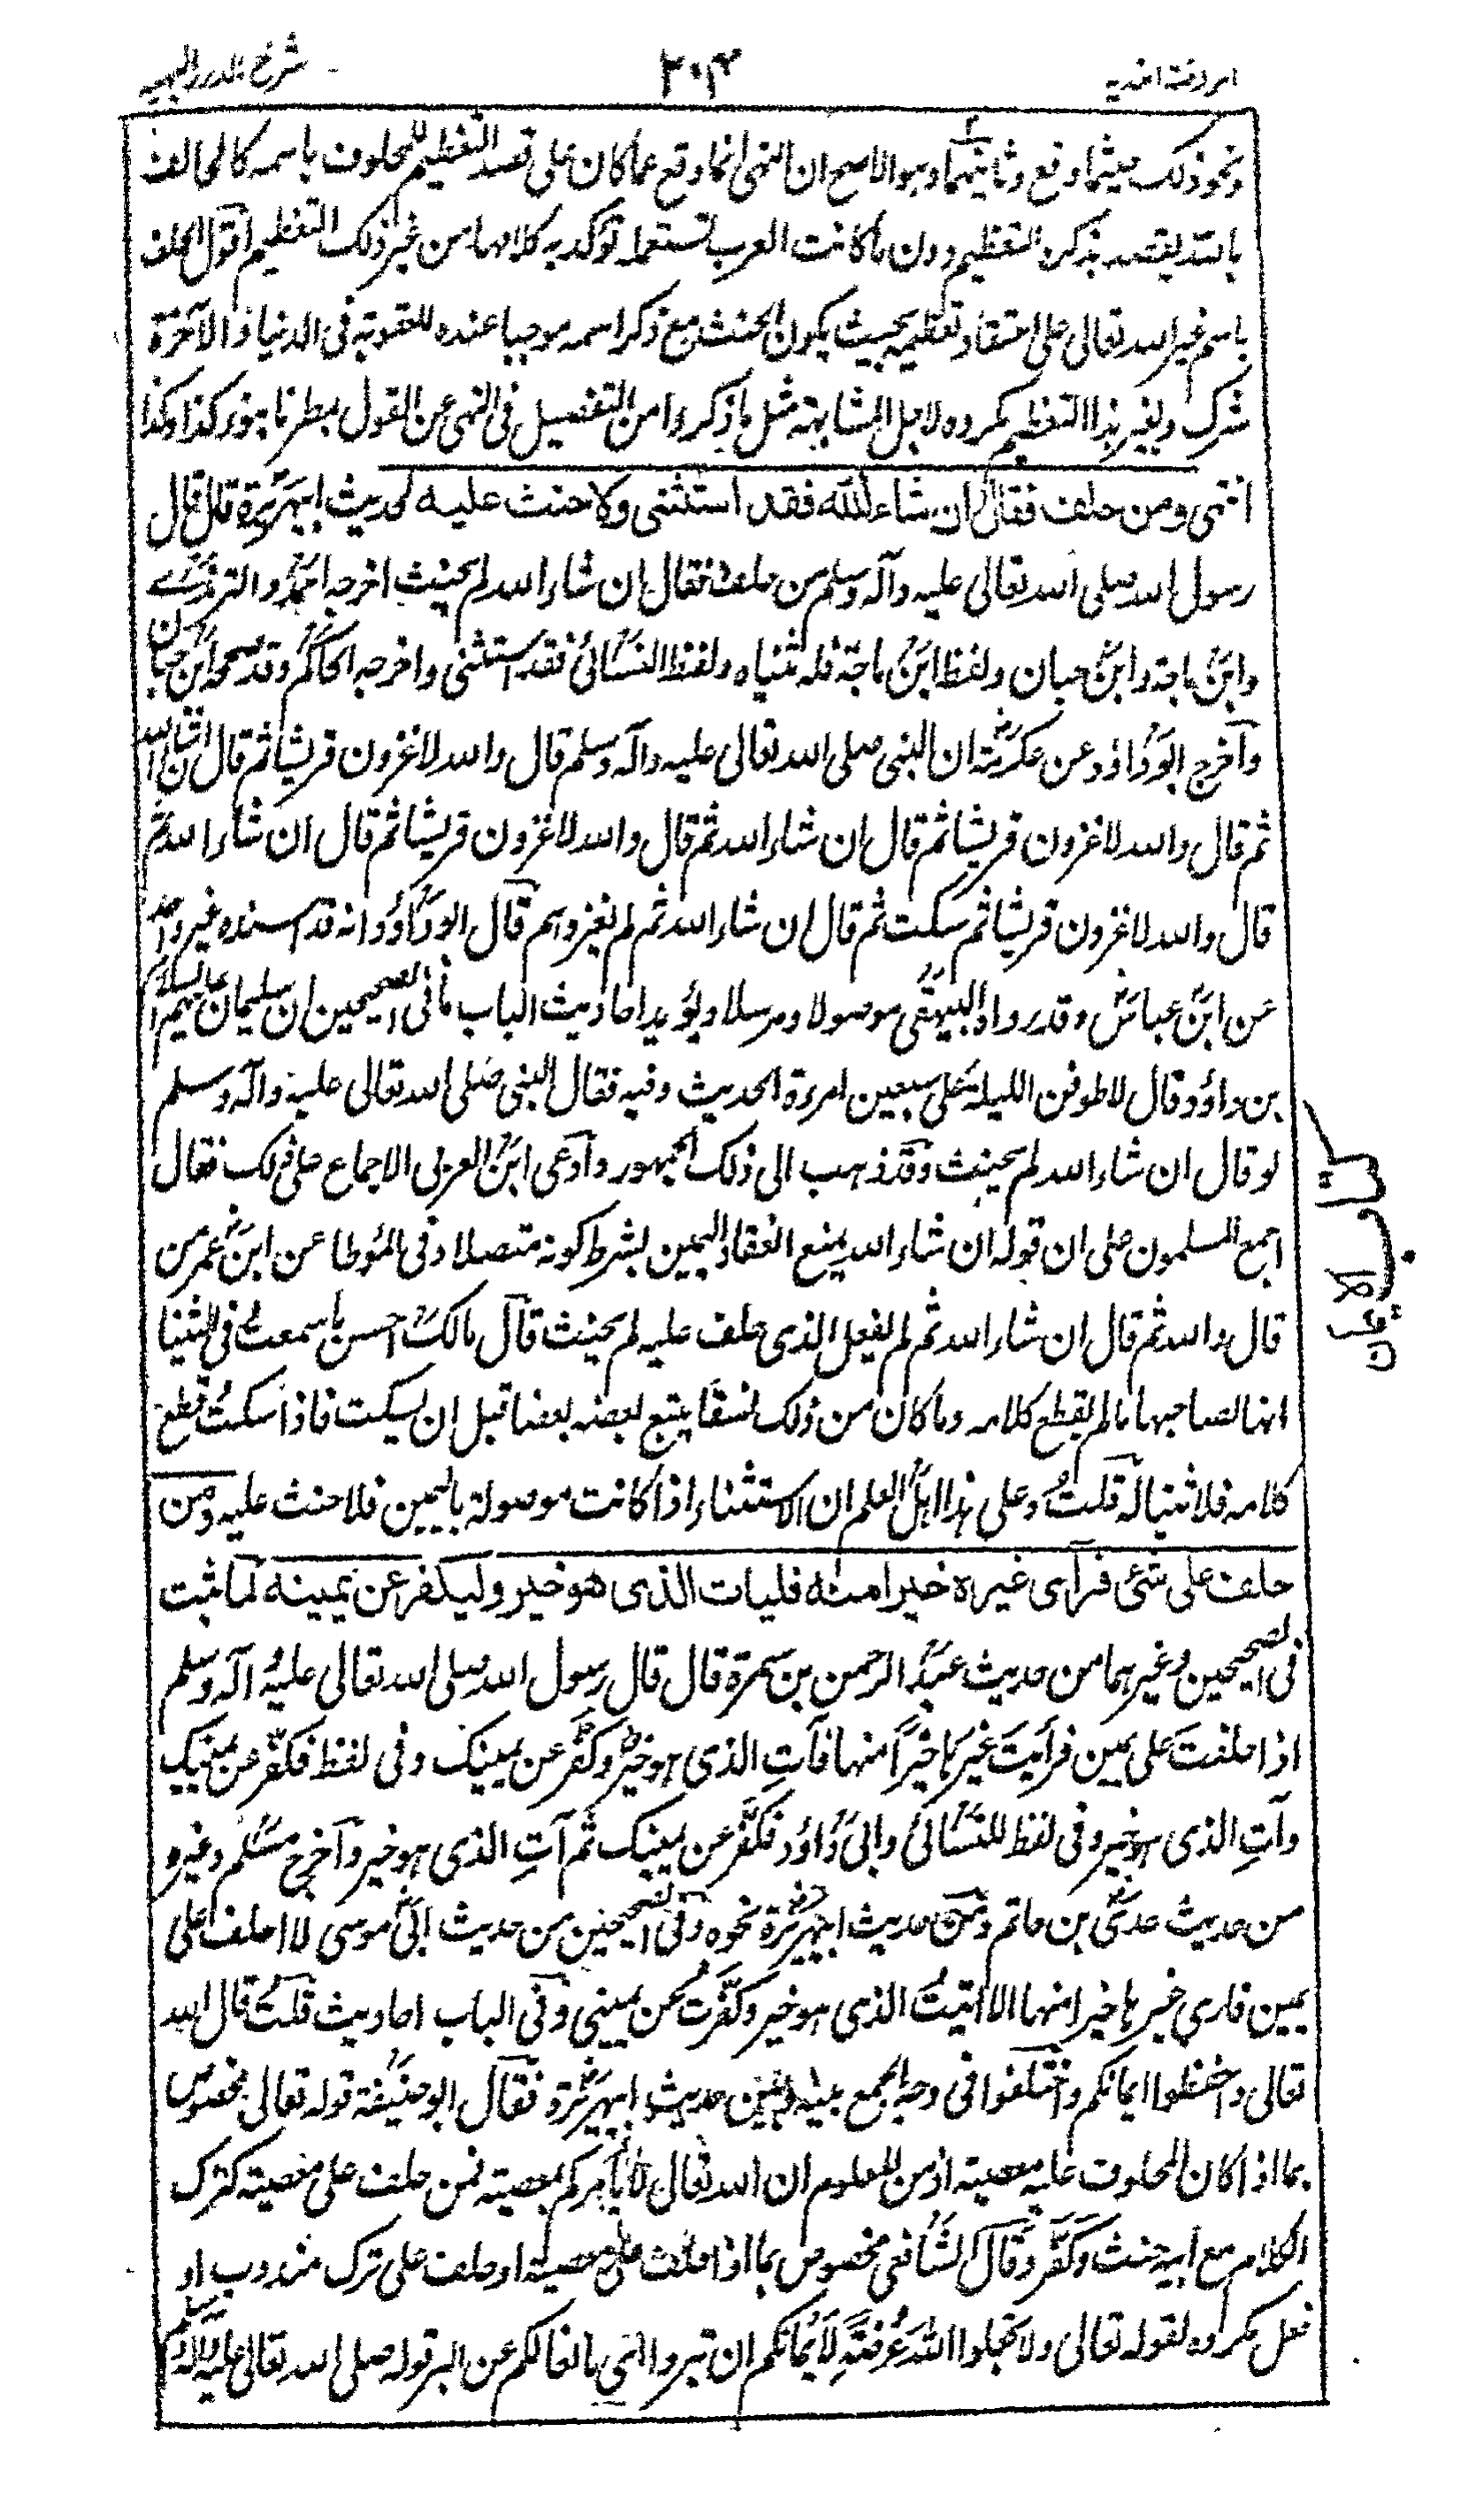 الروضة الندية ٢٠٣ شرح الدرر البهية
ونحو ذلك حيثما وقع وثانيهما وهو الاصح ان النهى انما وقع عما كان على قصد التعظيم للمحلوف باسمه كالحالف
بالله يقصد بذكره التعظيم دون ما كانت العرب تستعمله تؤكد به كلامها من غير ذلك التعظيم اقول الحلف
باسم غير الله تعالى على اعتقاد تعظيمه بحيث يكون الحنث مع ذكر اسمه موجبا عنده للعقوبة فى الدنيا والآخرة
شرك ولغير هذا التعظيم مكروه لاجل المشابهة مثل ما ذكروا من التفصيل فى النهى عن القول مطرنا بنوء كذا وكذا
انتهى ومن حلف فقال ان شاء الله فقد استثنى ولا حنث عليه لحديث ابيهريرة قال قال
رسول الله صلى الله تعالى عليه وآله وسلم من حلف فقال ان شاء الله لم يحنث اخرجه احمد والترمذے
وابن ماجة وابن حبان ولفظ ابن ماجة فله ثنياه ولفظ النسائى فقد استثنى واخرجه الحاكم وقد صححه ابن حبان
وآخرج ابوداؤد عن عكرمة ان النبى صلى الله تعالى عليه وآله وسلم قال والله لاغزون قريشا ثم قال ان شاء الله
ثم قال والله لاغزون قريشا ثم قال ان شاء الله ثم قال والله لاغزون قريشا ثم قال ان شاء الله ثم
قال والله لاغزون قريشا ثم سكت ثم قال ان شاء الله ثم لم يغزوهم قال ابوداؤد وانه قد اسنده غير واحد
عن ابن عباس وقد رواه البيهقى موصولا ومرسلا ويؤيد احاديث الباب ما فى الصحيحين ان سليمان عليهم السلام
بن داؤد قال لاطوفن الليلة على سبعين امرءة الحديث وفيه فقال النبى صلى الله تعالى عليه وآله وسلم
لو قال ان شاء الله لم يحنث وقد ذهب الى ذلك الجمهور وآدعى ابن العربى الاجماع على ذلك فقال
اجمع المسلمون على ان قوله ان شاء الله يمنع انعقاد اليمين بشرط كونه متصلا وفى المؤطا عن ابن عمر من
قال والله ثم قال ان شاء الله ثم لم يفعل الذى حلف عليه لم يحنث قال مالك احسن ما سمعت فى الثنيا
انها لصاحبها ما لم يقطع كلامه وما كان من ذلك نسقا يتبع بعضه بعضا قبل ان يسكت فاذا سكت وقطع
كلامه فلا ثنيا له قلت وعلى هذا اهل العلم ان الاستثناء اذا كانت موصولة باليمين فلا حنث عليه ومن
حلف على شئ فرآى غيره خيرا منه فليات الذى هو خير وليكفر عن يمينه لما ثبت
فى الصحيحين وغيرهما من حديث عبد الرحمن بن سمرة قال قال رسول الله صلى الله تعالى عليه وآله وسلم
اذا حلفتَ على يمين فرأيتَ غيرها خيراً منها فآتِ الذى هو خيرٌ وكفّر عن يمينك وفى لفظ فكفّر عن يمينك
وآتِ الذى هو خير وفى لفظ للنسائى وابى داؤد فكفّر عن يمينك ثم آتِ الذى هو خير وآخرج مسلم وغيره
من حديث عدى بن حاتم ومن حديث ابيهريرة نحوه وفى الصحيحين من حديث ابى موسى لا احلف على
يمين فارى غيرها خيرا منها الا اتيتُ الذى هو خير وكفّرتُ عن يمينى وفى الباب احاديث قلتُ قال الله
تعالى واحفظوا ايمانكم واختلفوا فى وجه الجمع بينه وبين حديث ابيهريرة فقال ابوحنيفة قوله تعالى مخصوص
بما اذا كان المحلوف عليه معصية اذ من المعلوم ان الله تعالى لا يأمركم بمعصية فمن حلف على معصية كترك
الكلام مع ابيه حنث وكفّر وقال الشافعى مخصوص بما اذا حلف على معصية او حلف على ترك مندوب او
فعل مكروه لقوله تعالى ولا تجعلوا اللهَ عُرضةً لأيمانكم ان تبروا اى مانعا لكم عن البر قوله صلى الله تعالى عليه وآله وسلم